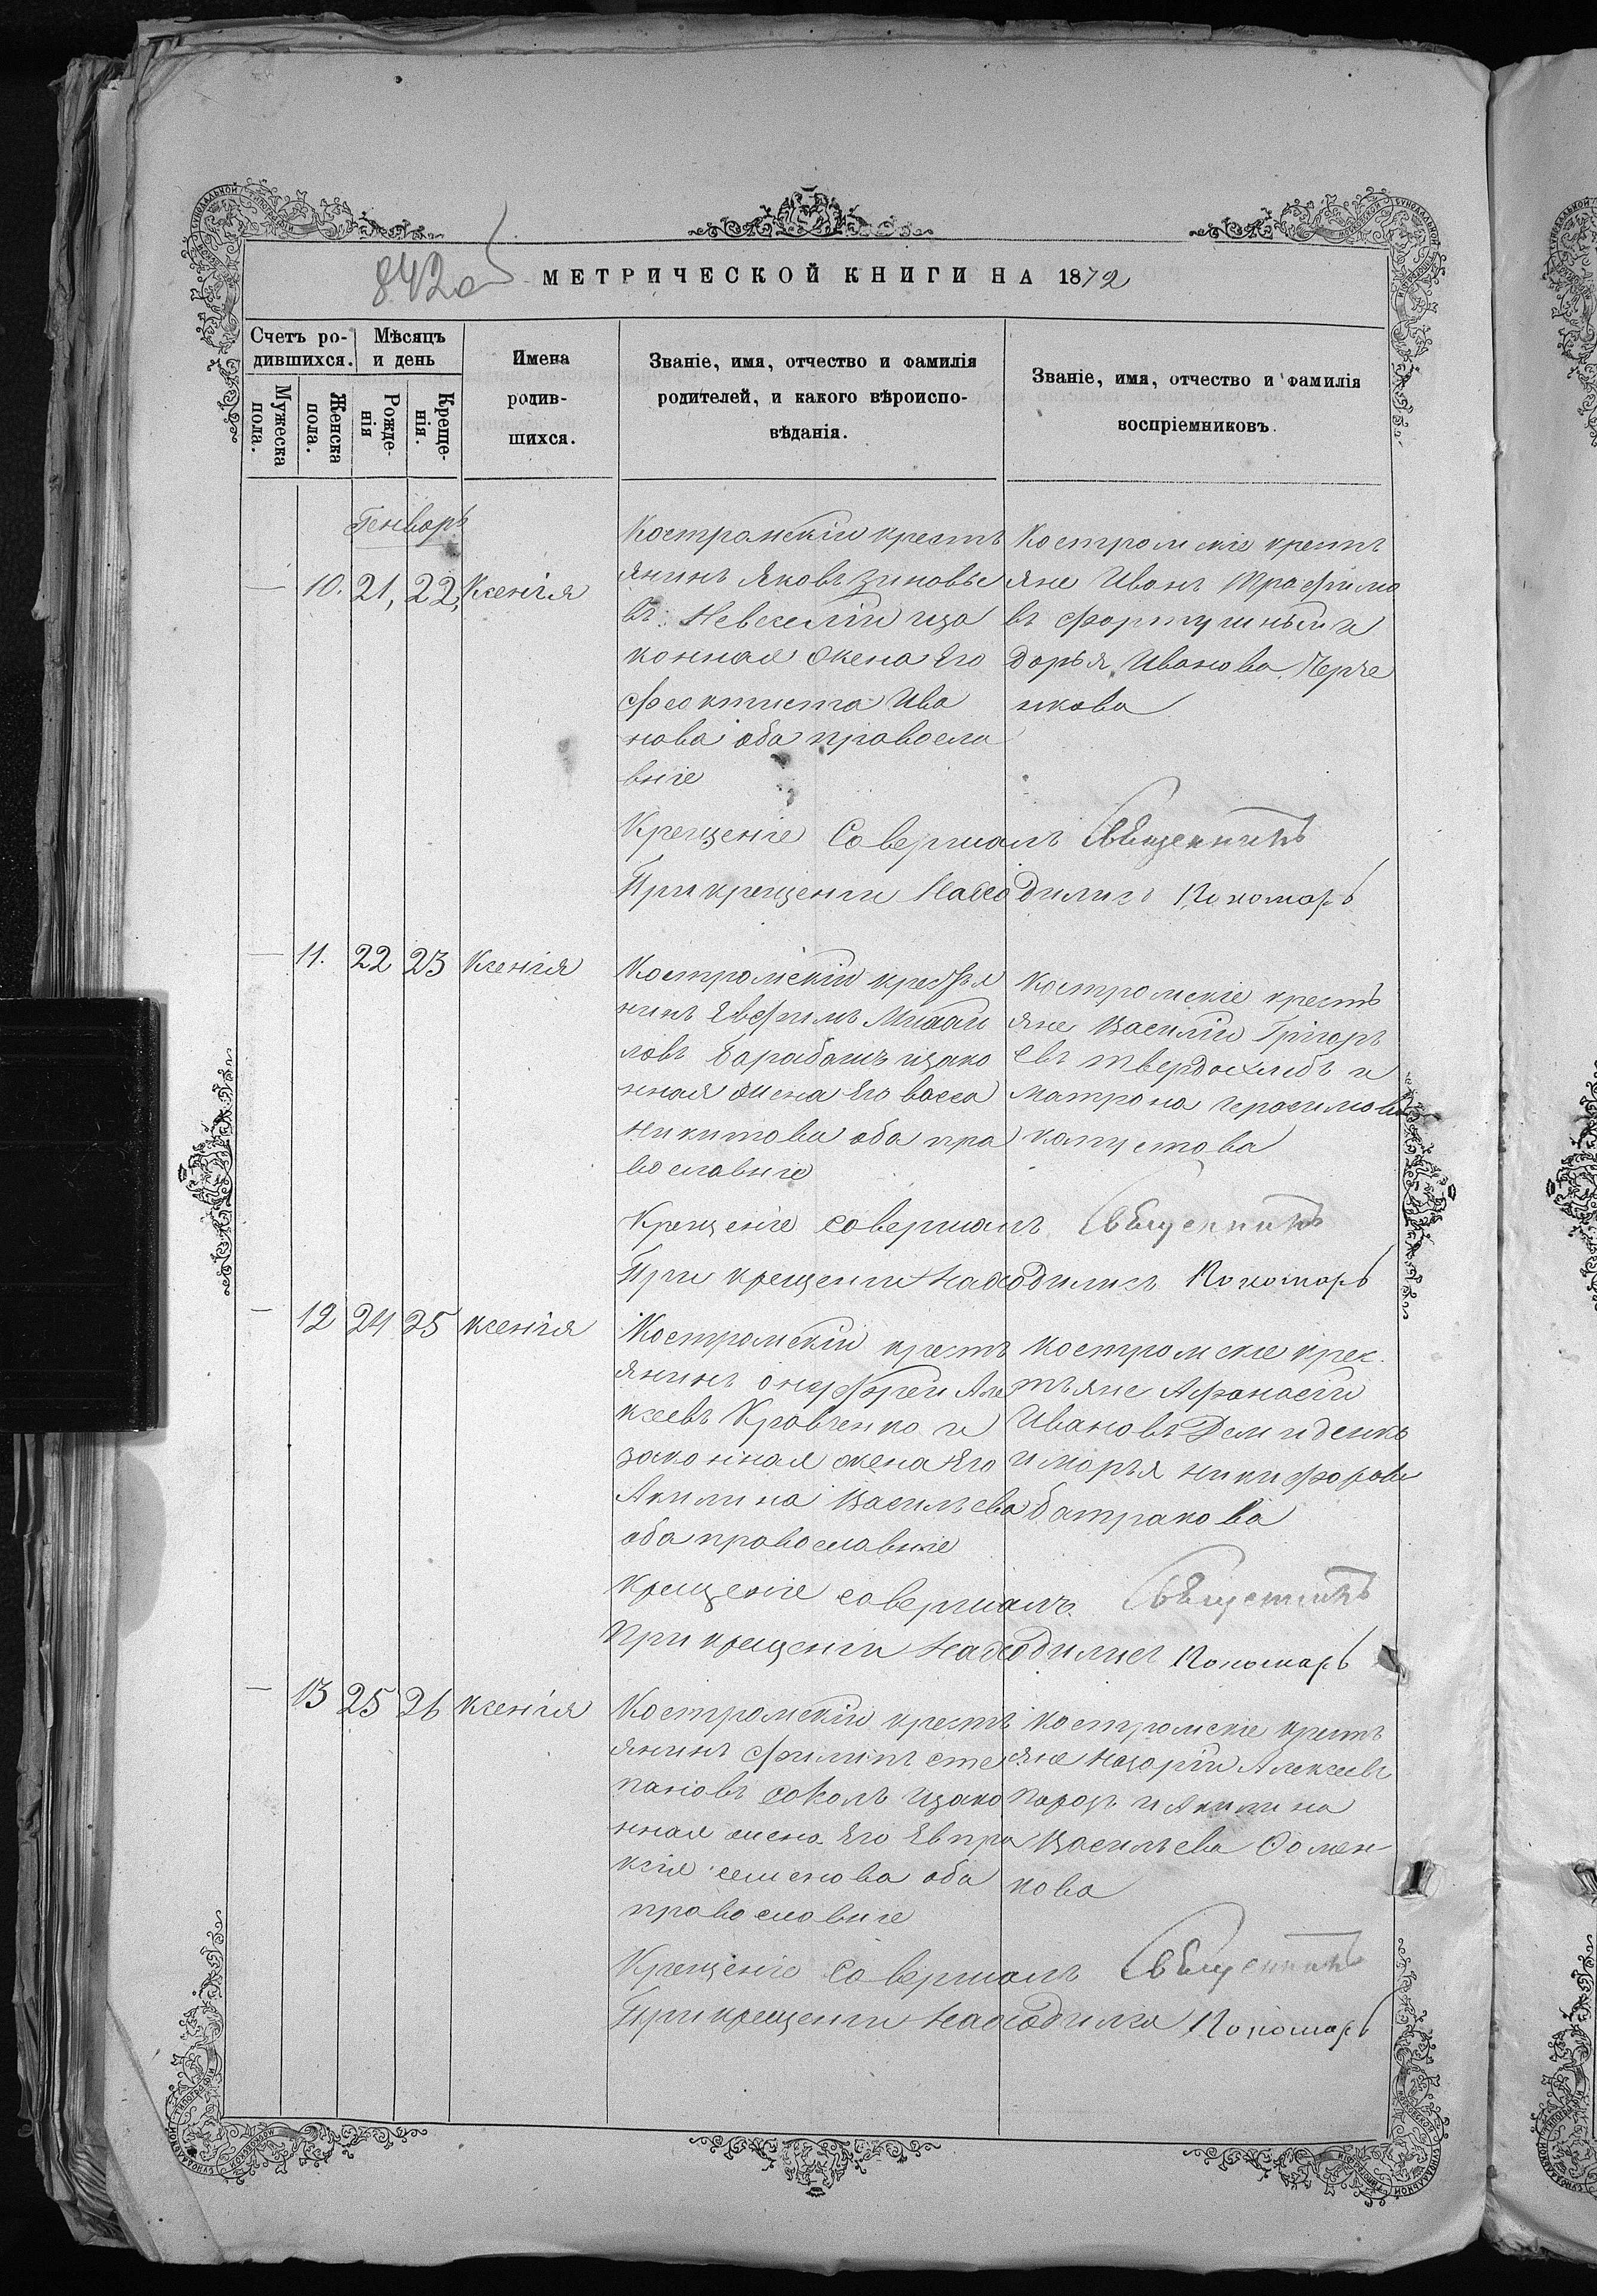 842об
МЕТРИЧЕСКОЙ КНИГИ НА 1872
Счетъ родившихся.
Мужеска пола.
Женска пола.
Мѣсяцъ и день
Рожденія
Крещенія.
Имена родившихся.
Званіе, имя, отчество и фамилія
родителей, и какого вѣроиспо-
вѣданія.
Званіе, имя, отчество и фамилія
воспріемниковъ.
Генварь
— 10. 21, 22, Ксенія
Костромскіи кресть
янинъ Яковъ Зиновье
въ Невеселіи иза
конная жена Его
Феоктиста Ива
нова оба правосла
вніе
Костромскіе кресть
яне Иванъ Трафимо
въ Фортушныи и
Дарья Иванова Черче
нкова
Крещеніе Совершалъ Священникъ
При крещеніи Находились Пономарь
— 11. 22 23 Ксенія
Костромскіи крестья
нинъ Евфимъ Михаи
ловъ Барабашъ изако
нная жена Его васса
никитова оба пра
вославніе
Костромскіе кресть
яне Василіи Григорь
евъ твердохлебъ и
матрона герасимова
капустова
Крещеніе совершалъ Священникъ
При крещеніи Находились Пономарь
— 12 24 25 ксенія
Костромскіи кресть
янинъ онуфреи Але
ксеевъ Кравченко и
законная жена Его
Акилина Васильева
оба православніе
костромскіе крес
тьяне Афанасіи
Ивановъ Демиденко
и марья никифорова
батракова
Крещеніе совершалъ Священникъ
При крещеніи Находились Пономарь
— 13 25 26 ксенія
Костромскіи кресть
янинъ Филипъ сте
пановъ соколъ изако
нная жена Его Евпра
ксія семенова оба
православніе
костромскіе кресть
яне назаріи Алексеевъ
парозъ и Акилина
Васильева Фомен
кова
Крещеніе Совершалъ Священникъ
При крещеніи Находился Пономарь